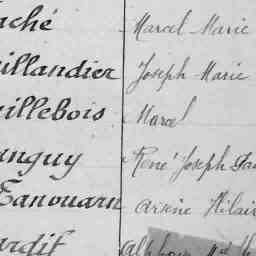 aché Marcel Marie
illandier Joseph Marie
illebois Marcel
anguy René Joseph
Tanouarn Arsène Hilair
ardif